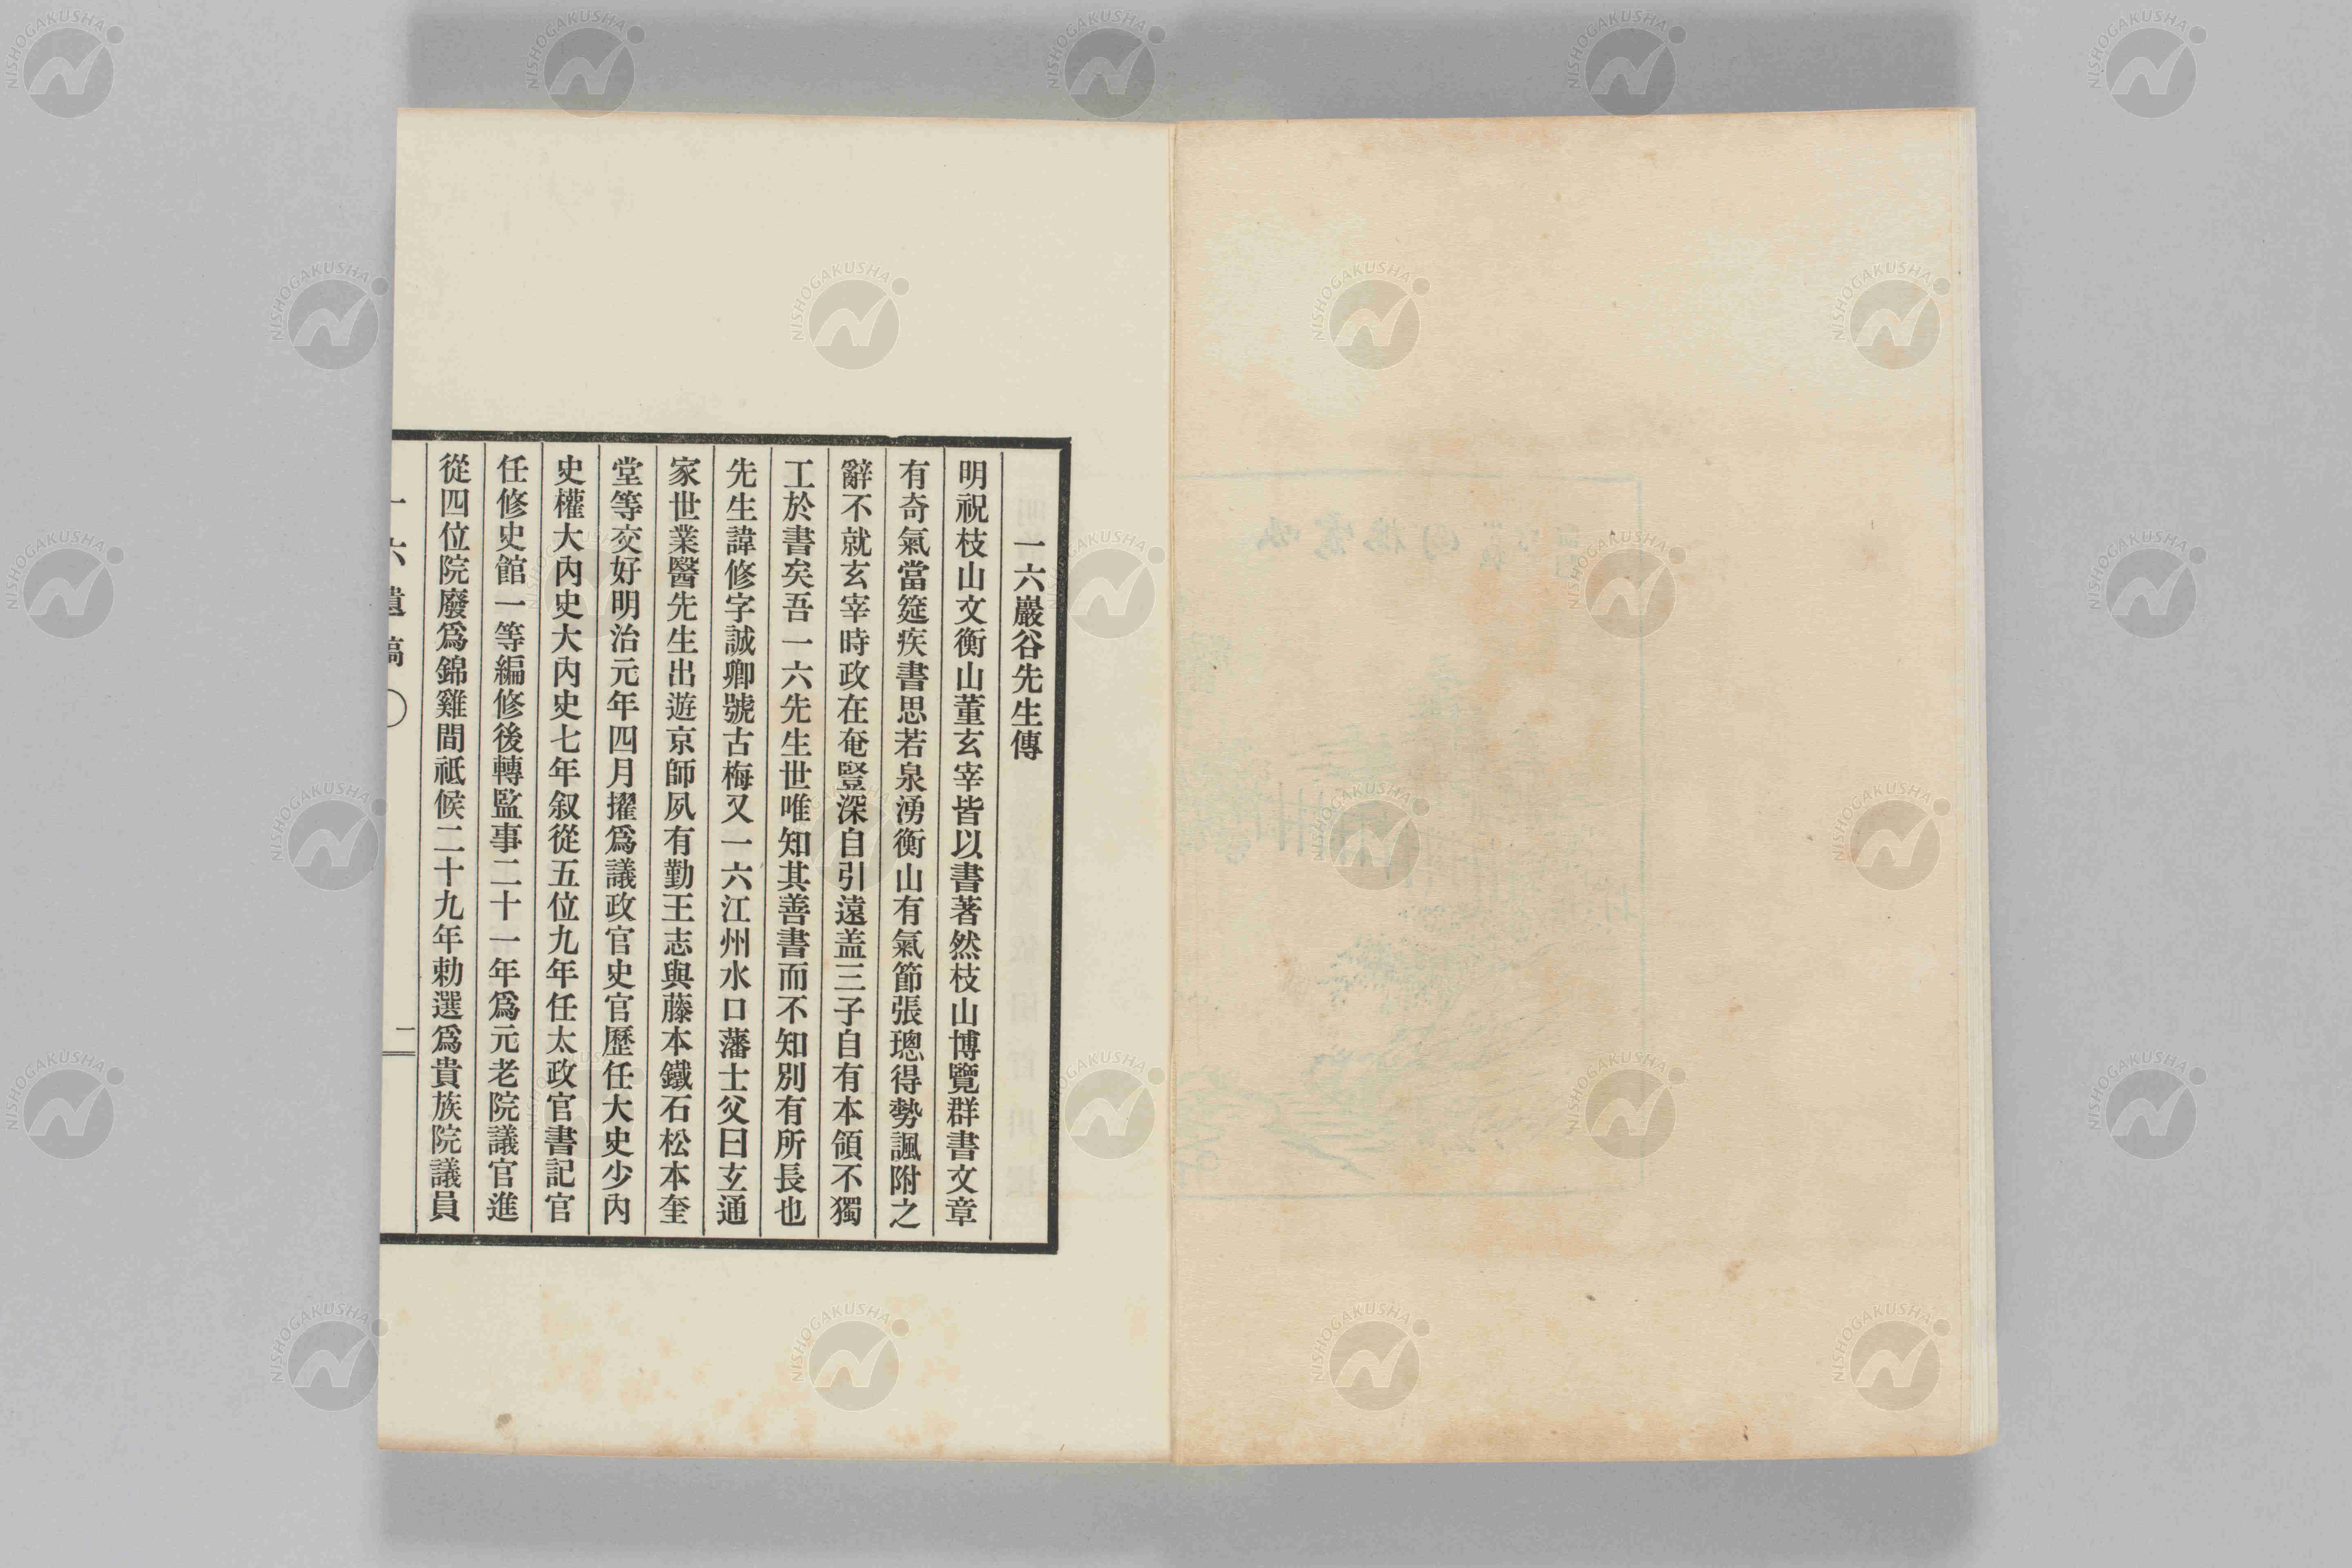 一六巖谷先生傳
明祝枝山文衡山董玄宰皆以書著然枝山博覽群書文章
有奇氣當筵疾書思若泉湧衡山有氣節張璁得勢諷附之
辭不就玄宰時政在奄豎深自引遠盖三子自有本領不獨
工於書矣吾一六先生世唯知其善書而不知別有所長也
先生諱修字誠卿號古梅又一六江州水口藩士父曰玄通
家世業醫先生出遊京師夙有勤王志與藤本鐵石松本奎
堂等交好明治元年四月擢爲議政官史官歷任大史少內
史權大內史大內史七年叙從五位九年任太政官書記官
任修史館一等編修後轉監事二十一年爲元老院議官進
從四位院廢爲錦雞間祗候二十九年勅選爲貴族院議員
一六遺稿
二
NISHOGAKUSHA